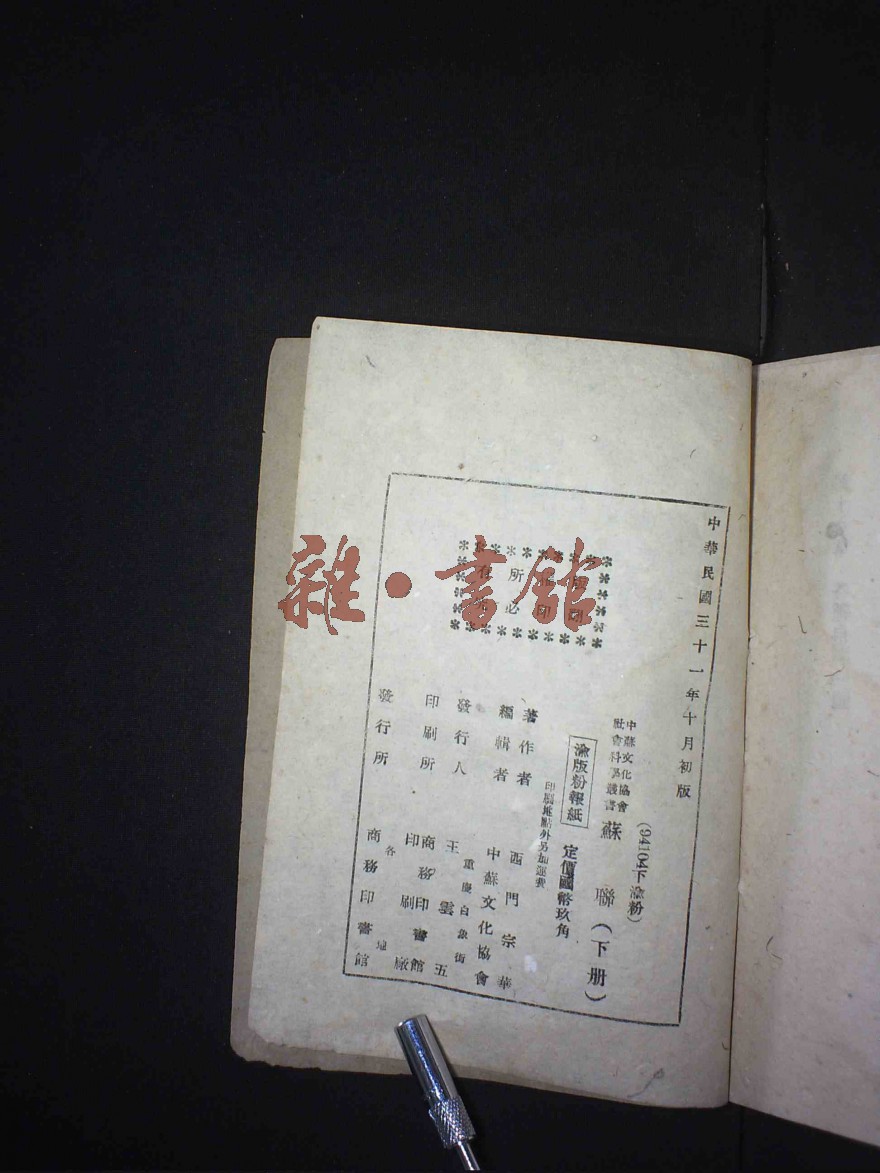 中華民國三十一年十月初版
(94104下渝粉)
中蘇文化協會
社會科學叢書
蘇聯(下册)
渝版粉報紙
定價國幣玖角
印刷地點外另加運費
著作者 西門宗華
編輯者 中蘇文化協會
發行人 王雲五
重慶白象街
印刷所 商務印書館
印刷廠
發行所 商務印書館
各地
所
必
有
雜·書館